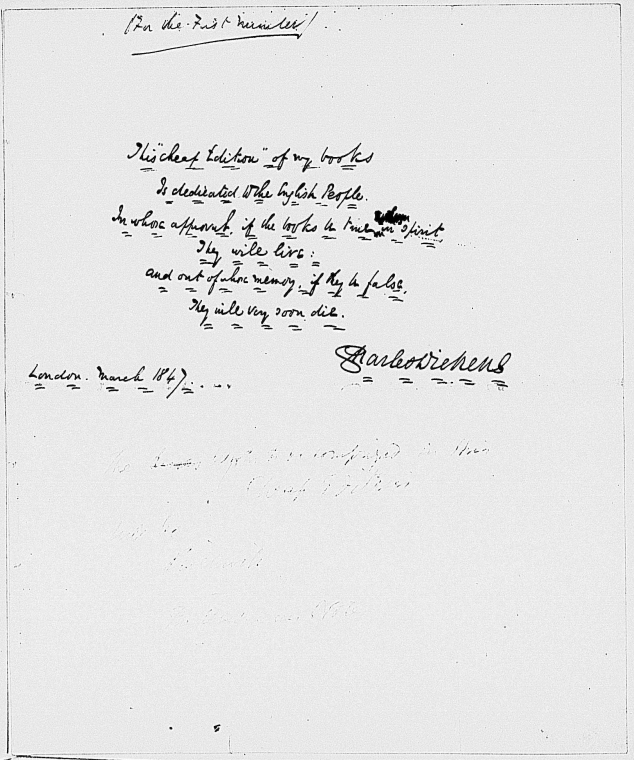 (For the First Number)
This "cheap Edition" of my books
Is dedicated to the English People.
In whose approval, if the books be true in spirit
They will live:
and out of whose memory, if they be false,
They will very soon die.
Charles Dickens
London. March 1847.....